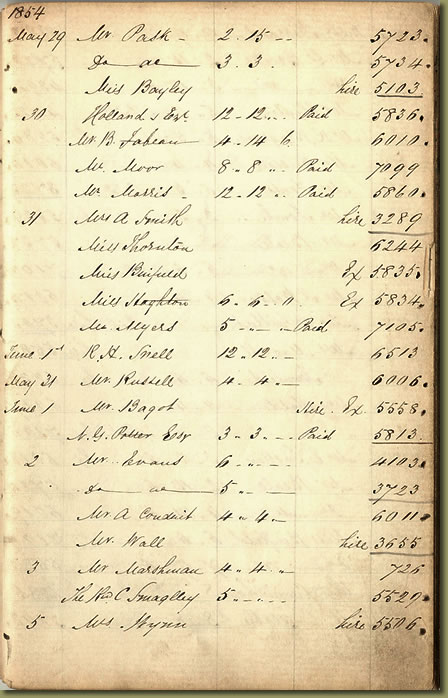 1854
May 29 Mr. Pask - 2. 15 .. - 5723.
Do do 3. 3. 5734.
Miss Bayley hire 5103
30 Holland & Esr. 12.. 12.. .. Paid 5836.
Mr. B. 4.. 14 6 6010.
Mr. Moor 8.. 8 .. Paid 7099
Mr. Morris - 12.. 12 .. Paid 5860.
31 Mrs A Smith hire 3289
Miss Thornton 6244
Miss Ex 5835.
Miss Hoghton 6.. 6.. 0 Ex 5834.
Mr. Myers 5 .. .. - Paid 7105.
June 1st R. H. Snell 12.. 12.. - 6513
May 31 Mr. Russell 4.. 4.. - 6006.
June 1 Mr. Bagot Hire. Ex. 5558.
N. G. Potter Esqr 3.. 3.. - Paid 5813
2 Mr. Evans 6 .. .. - 4103.
Do do 5 .. .. 3723
Mr. A Conduit 4.. 4.. - 6011.
Mr. Wall hire 3655
3 Mr Marshman 4.. 4.. .. 726
The C. 5 .. .. - 5529.
5 Mrs Wynn hire 5506.